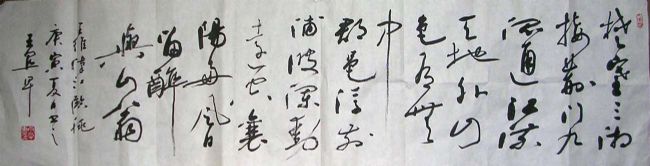 楚塞三湘
接荊門九
派通江流
天地外山
色有無
中
郡邑浮前
浦波瀾動
遠空襄
陽好風日
留醉
與山翁
王維詩漢江臨眺
庚寅夏月